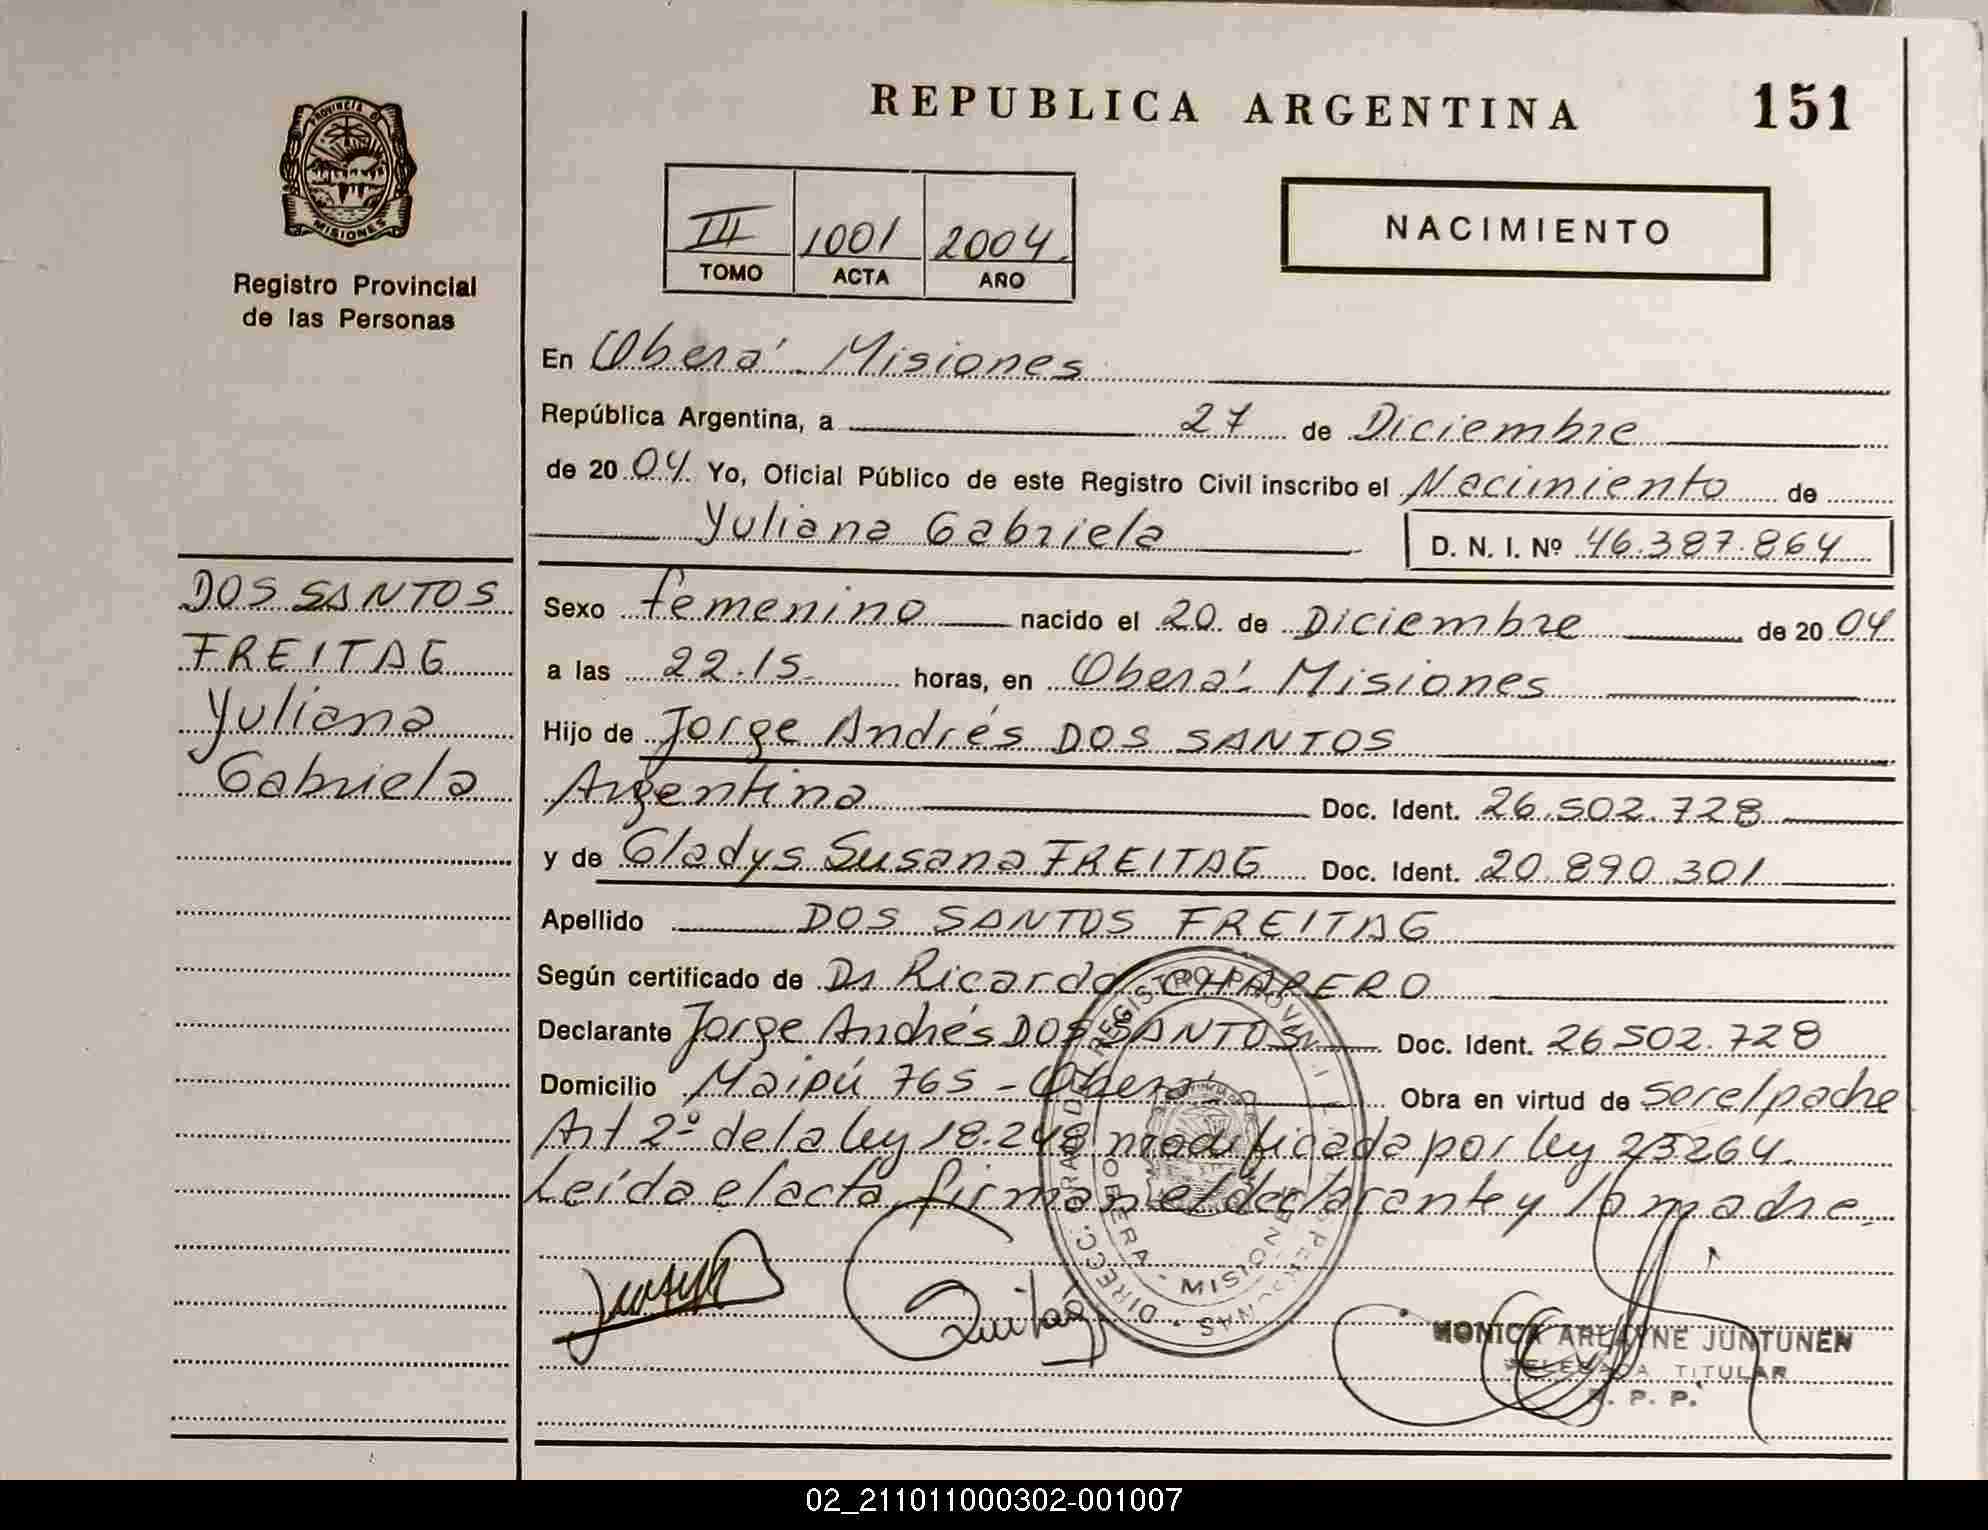 REPUBLICA ARGENTINA
151
PROVINCIA DE
MISIONES
Registro Provincial
de las Personas
III 1001 2004.
TOMO ACTA AÑO
NACIMIENTO
En Oberá. Misiones
República Argentina, a 27 de Diciembre
de 20 04. Yo, Oficial Público de este Registro Civil inscribo el Nacimiento de
Yuliana Gabriela D. N. I. Nº 46.387.864
DOS SANTOS
FREITAG
Yuliana
Gabriela
Sexo femenino nacido el 20 de Diciembre de 20 04
a las 22.15. horas, en Oberá. Misiones
Hijo de Jorge Andrés DOS SANTOS
Argentina Doc. Ident. 26.502.728
y de Gladys Susana FREITAG Doc. Ident. 20.890.301
Apellido DOS SANTOS FREITAG
Según certificado de Dr Ricardo
Declarante Jorge Andrés DOS SANTOS Doc. Ident. 26.502.728
Domicilio Maipú 765 - Oberá Obra en virtud de ser el padre
Art 2º de la ley 18.248 modificada por ley 23264.
Leída el acta, firman el declarante y la madre.
DIRECC. GRAL. DEL REGISTRO PROVINCIAL DE LAS PERSONAS
OBERA - MISIONES
MONICA ARLAYNE JUNTUNEN
DELEGADA TITULAR
R. P. P.
02_211011000302-001007